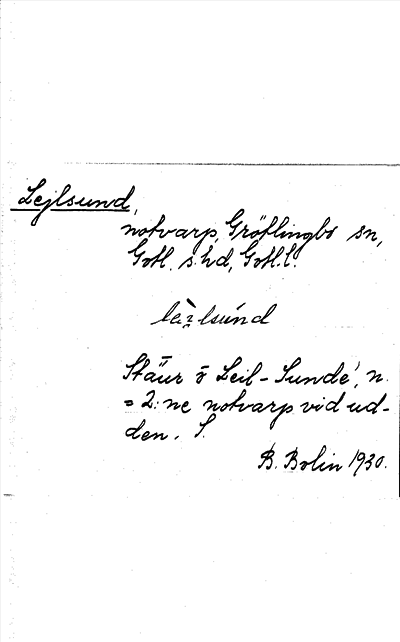 Lejlsund,
notvarp, Gröttlingbo sn,
Gotl. s. hd, Gotl. l.
Stäur ö Leil-Sunde', n.
= 2:ne notvarp vid ud-
den. S.
B. Bolin 1930.